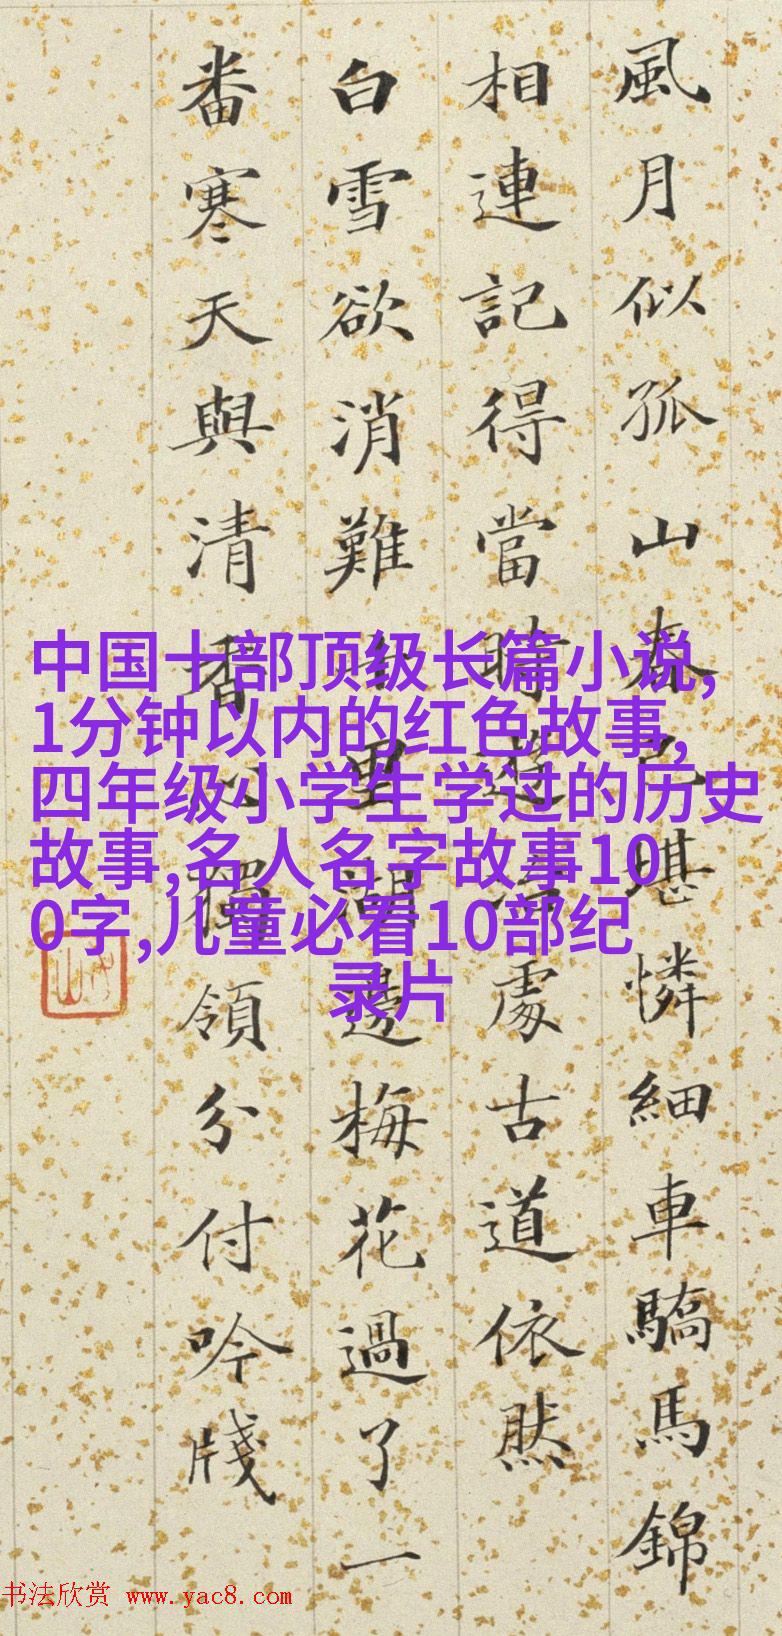 風月似孤山春色堪憐細車驕馬錦
相連記得當時遊處古道依然
白雪欲消難里湖邊梅花過了一
番寒天與清香心獨領分付吟牋
中国十部顶级长篇小说,
1分钟以内的红色故事,
四年级小学生学过的历史
故事,名人名字故事10
0字,儿童必看10部纪
录片
书法欣赏 www.yac8.com